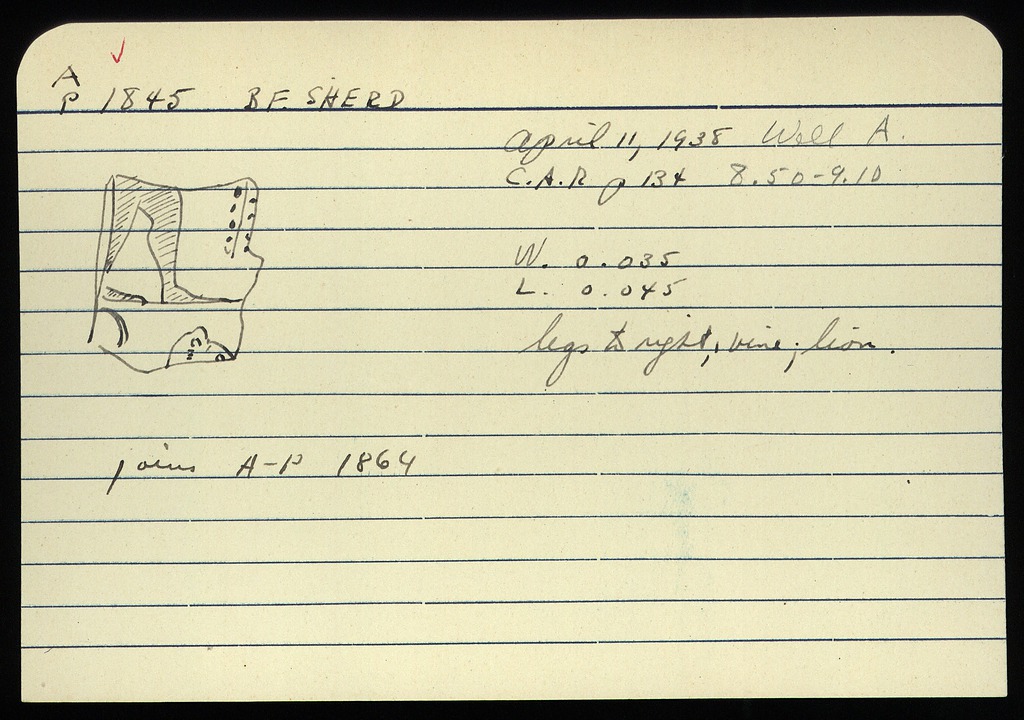 A
P 1845 BF. SHERD
April 11, 1938 Well A.
C.A.R p 134 8.50-9.10
W. 0.035
L. 0.045
legs to right, vine; lion.
joins A-P 1864